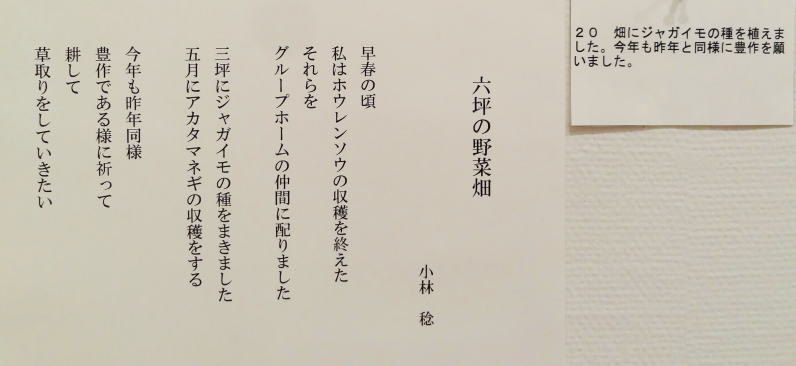 六坪の野菜畑
小林　稔
早春の頃
私はホウレンソウの収穫を終えた
それらを
グループホームの仲間に配りました
三坪にジャガイモの種をまきました
五月にアカタマネギの収穫をする
今年も昨年同様
豊作である様に祈って
耕して
草取りをしていきたい
２０　畑にジャガイモの種を植えま
した。今年も昨年と同様に豊作を願
いました。